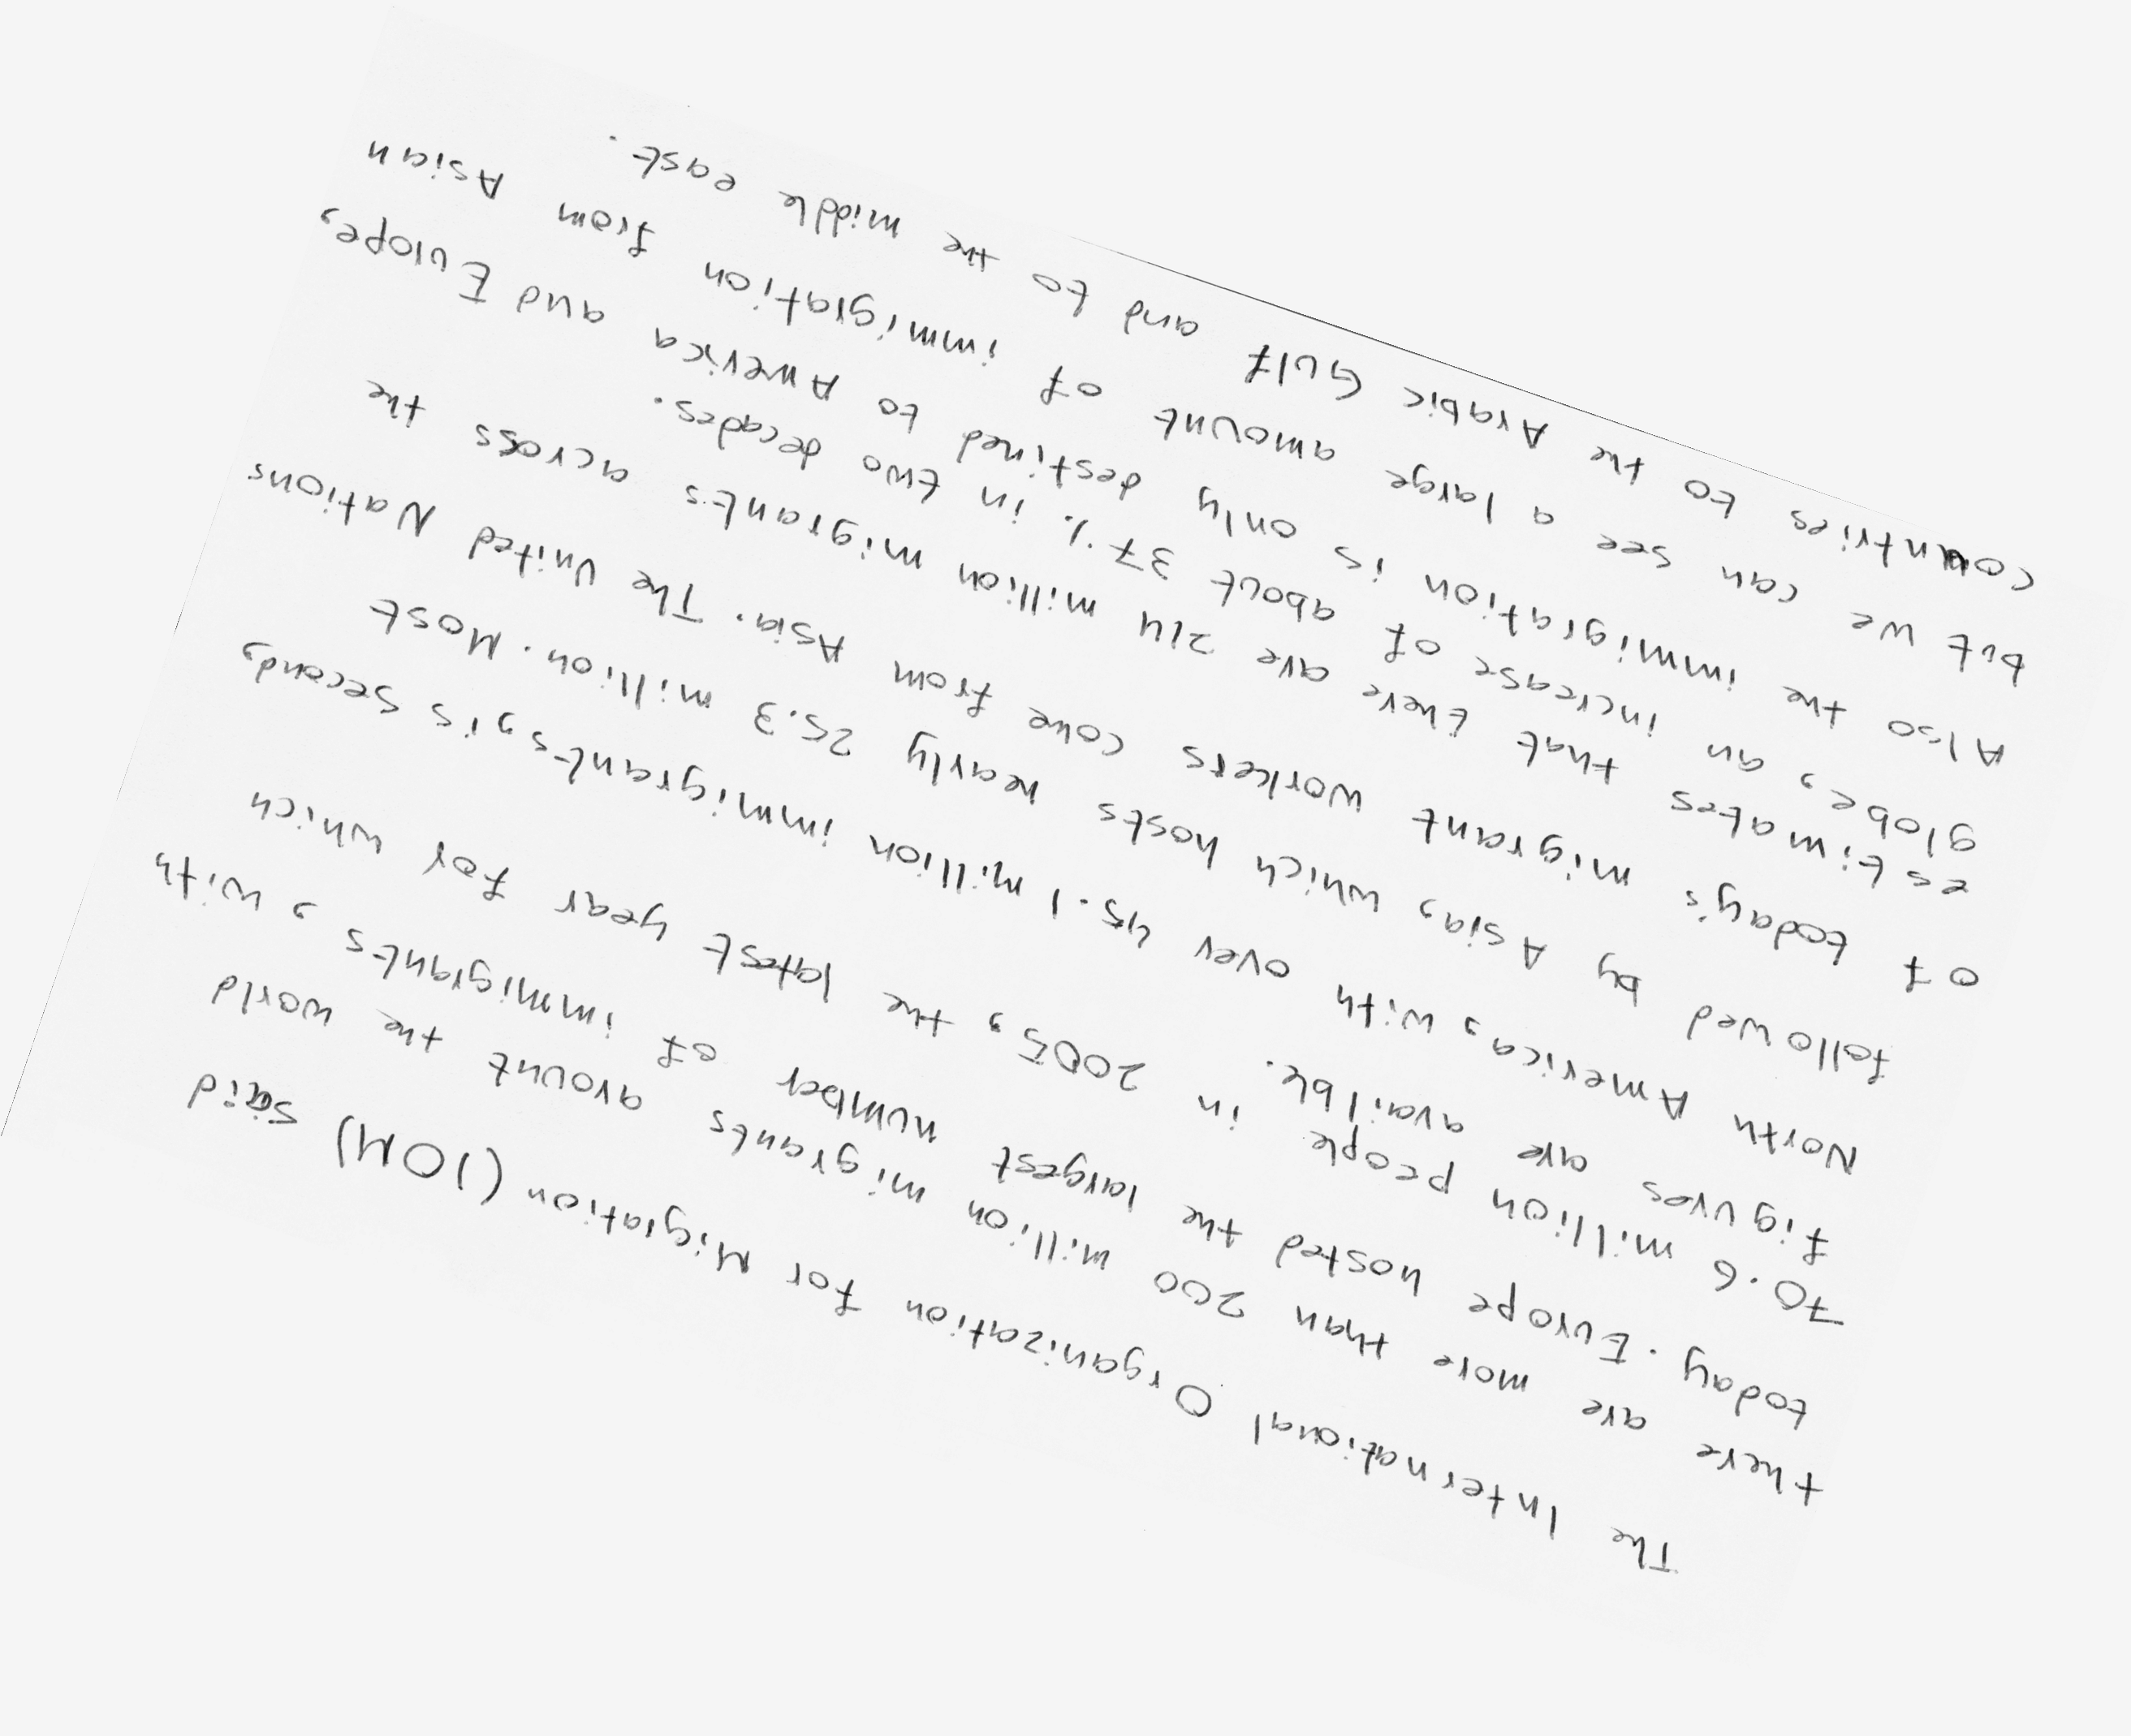 The International Organization for Migration (IOM) said
there are more than 200 million migrants arount the world
today. Europe hosted the largest number of immigrants, with
70.6 million people in 2005, the latest year for which
figures are availble.
North America, with over 45.1 million immigrants, is second,
followed by Asia, which hosts nearly 25.3 million. Most
of today's migrant workers come from Asia. The United Nations
estimates that there are 214 million migrants across the
globe, an increase of about 37% in two decades.
Also the immigration is only destined to America and Europe,
but we can see a large amount of immigration from Asian
countries to the Arabic Gulf and to the middle east.